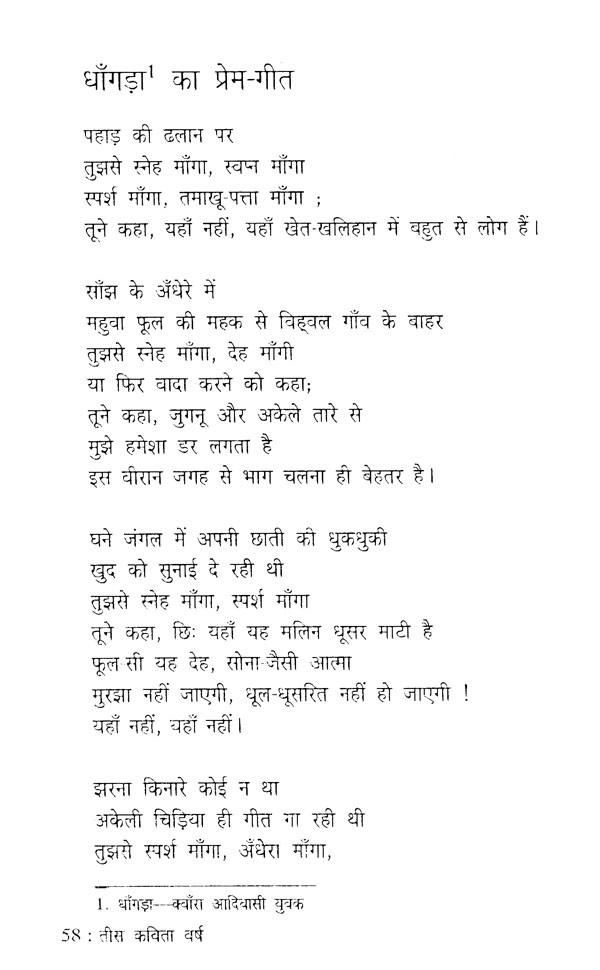 धाँगड़ा¹ का प्रेम-गीत
पहाड़ की ढलान पर
तुझसे स्नेह माँगा, स्वप्न माँगा
स्पर्श माँगा, तमाखू-पत्ता माँगा ;
तूने कहा, यहाँ नहीं, यहाँ खेत-खलिहान में बहुत से लोग हैं।
साँझ के अँधेरे में
महुवा फूल की महक से विह्वल गाँव के बाहर
तुझसे स्नेह माँगा, देह माँगी
या फिर वादा करने को कहा;
तूने कहा, जुगनू और अकेले तारे से
मुझे हमेशा डर लगता है
इस वीरान जगह से भाग चलना ही बेहतर है।
घने जंगल में अपनी छाती की धुकधुकी
खुद को सुनाई दे रही थी
तुझसे स्नेह माँगा, स्पर्श माँगा
तूने कहा, छिः यहाँ यह मलिन धूसर माटी है
फूल-सी यह देह, सोना-जैसी आत्मा
मुरझा नहीं जाएगी, धूल-धूसरित नहीं हो जाएगी !
यहाँ नहीं, यहाँ नहीं।
झरना किनारे कोई न था
अकेली चिड़िया ही गीत गा रही थी
तुझसे स्पर्श माँगा, अँधेरा माँगा,
1. धाँगड़ा—क्वाँरा आदिवासी युवक
58 : तीस कविता वर्ष